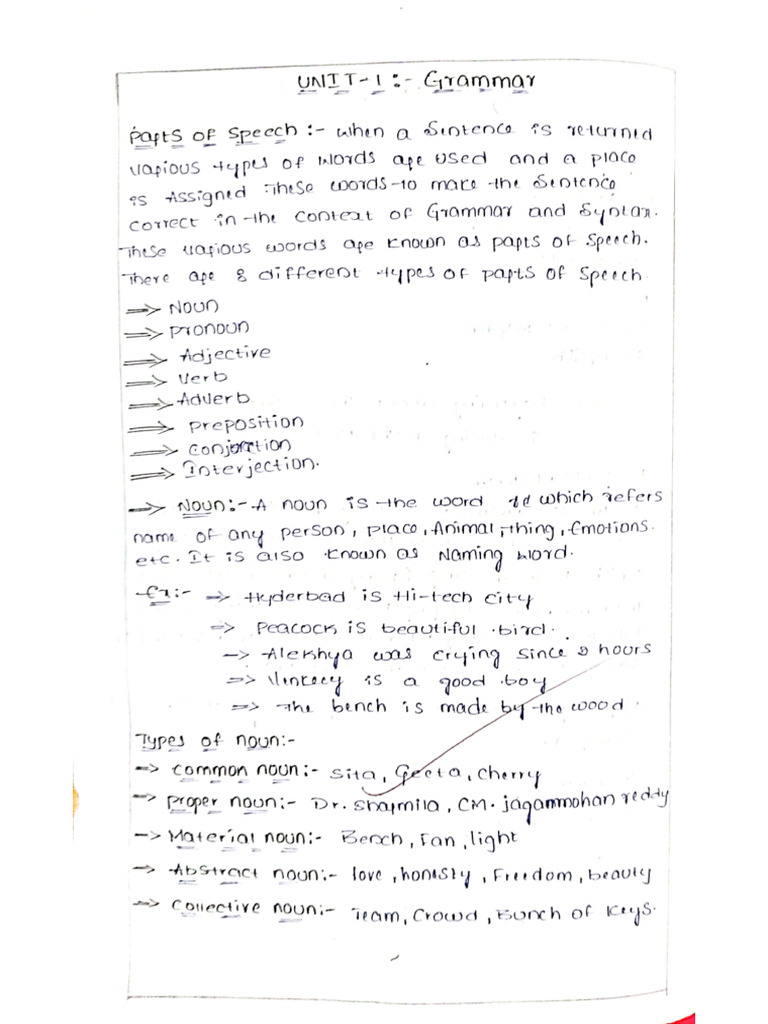 UNIT-1:- Grammar
Parts of Speech :- When a Sentence is returned
various types of words are used and a place
is Assigned These words to make the Sentence
correct in the context of Grammar and Syntax.
These various words are known as parts of Speech.
There are 8 different types of parts of Speech
=> Noun
=> Pronoun
=> Adjective
=> Verb
=> Adverb
=> Preposition
=> Conjuction
=> Interjection.
-> Noun:- A noun is the word which refers
name of any person, place, Animal, thing, Emotions.
etc. It is also known as Naming word.
Ex:- => Hyderbad is Hi-tech city
=> Peacock is beautiful bird.
-> Alekhya was crying since 2 hours
=> is a good boy
=> The bench is made by the wood.
Types of noun:-
-> Common noun:- Sita, Geeta, Cherry
-> Proper noun:- Dr. Sharmila, CM. jaganmohan reddy
-> Material noun:- Bench, Fan, light
-> Abstract noun:- love, honesty, Freedom, beauty
=> Collective noun:- Team, Crowd, Bunch of Keys.